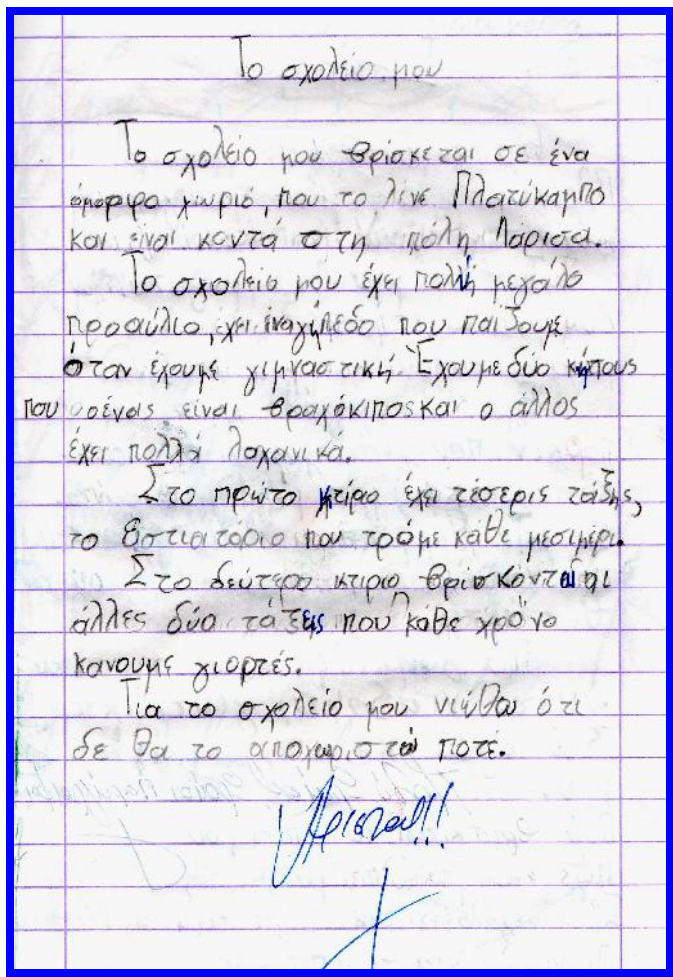 Το σχολείο μου
Το σχολείο μου βρίσκεται σε ένα
όμορφο χωριό, που το λένε Πλατύκαμπο
και είναι κοντά στη πόλη Λάρισα.
Το σχολείο μου έχει πολύ μεγάλο
προαύλιο, έχει ένα γήπεδο που παίζουμε
όταν έχουμε γιμναστική. Έχουμε δύο κήπους
που ο ένας είναι βραχόκιπος και ο άλλος
έχει πολλά λαχανικά.
Στο πρώτο κτίριο έχει τέσερις τάξης,
το εστιατόριο που τρώμε κάθε μεσιμέρι.
Στο δεύτερο κτιριο βρίσκονται οι
άλλες δύο τάξεις που κάθε χρόνο
κανουμε γιορτές.
Για το σχολείο μου νιώθω ότι
δε θα το αποχωριστώ ποτέ.
Άριστα!!!